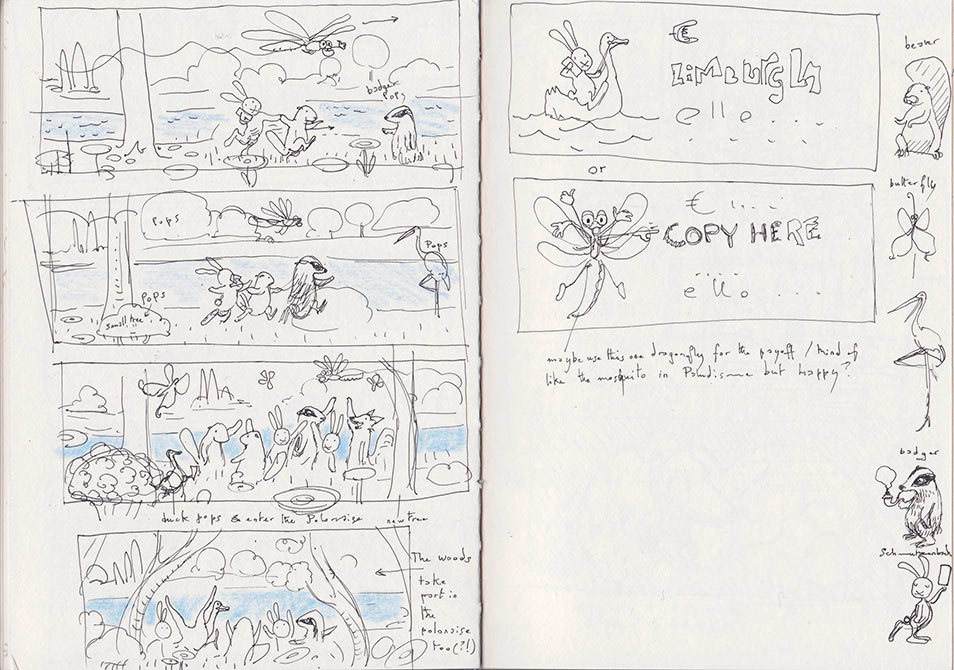 badger
pops
Pops
Pops
Pops
small tree
duck pops & enter the Polonaise
new tree
The woods
take
part in
the
polonaise
too(?!)
€
LIMBURG LA
ello . . .
or
€ . . . .
COPY HERE
. . . .
ello . . .
maybe use this one dragonfly for the payoff / kind of
like the mosquito in but happy?
beaver
butterfly
badger